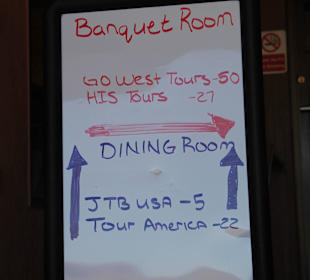 Banquet Room
GO West Tours-50
HIS Tours -27
DINING Room
JTB USA -5
Tour America -22